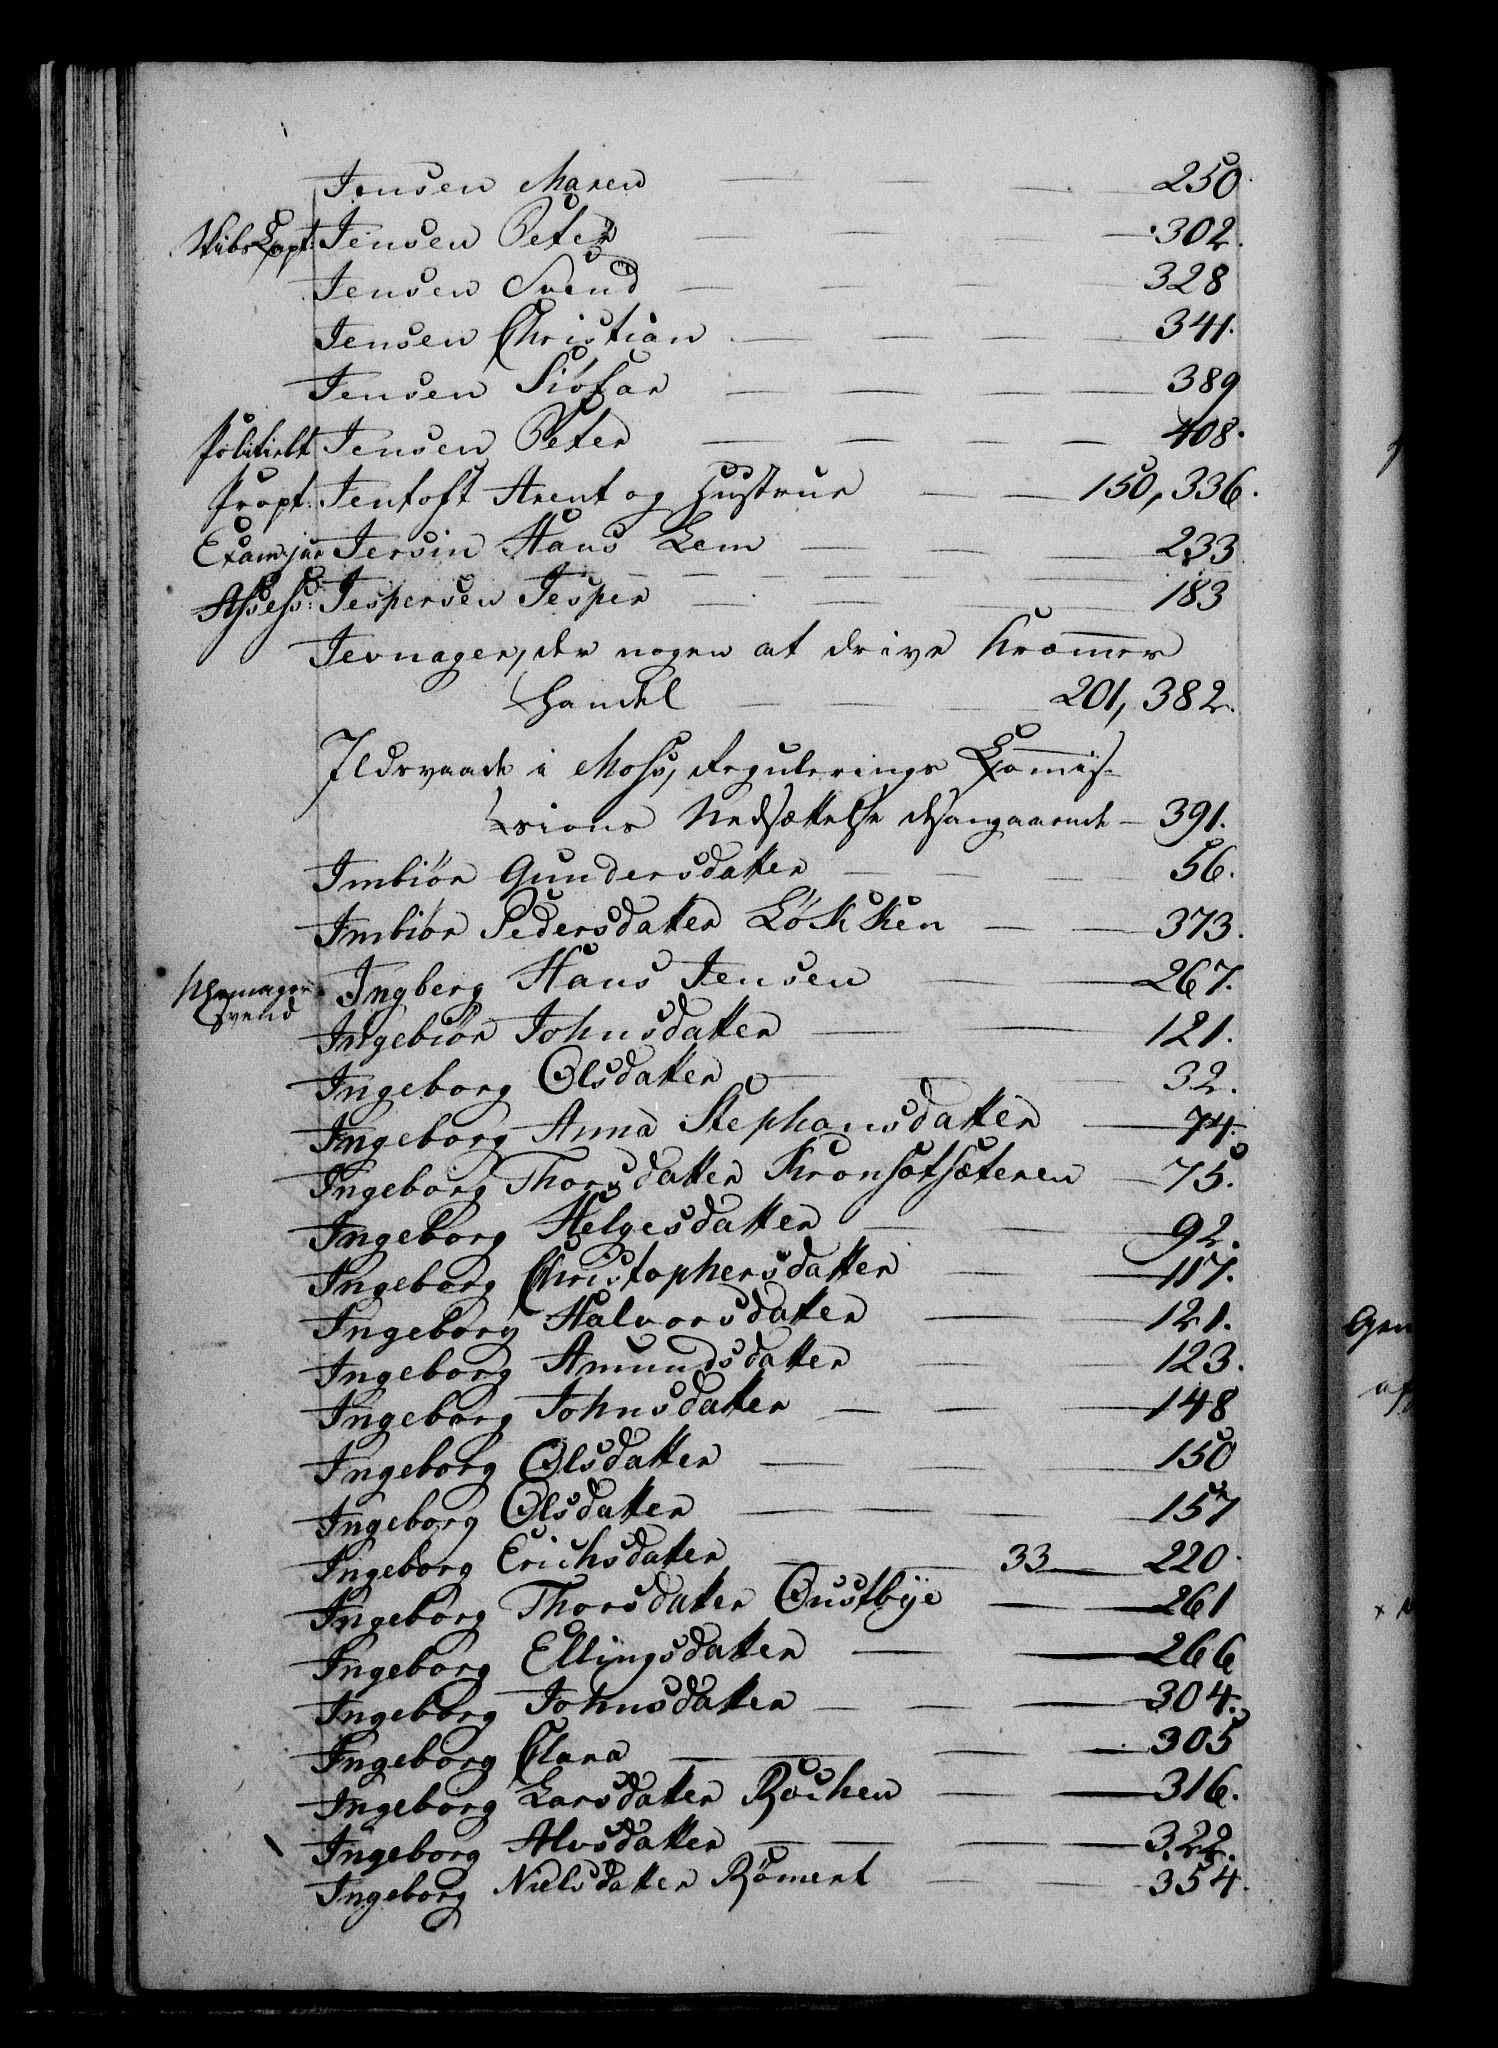 Jensen Maren — — — 250.
Skibs Capt: Jensen Peter — — — 302.
Jensen Svend — — — 328
Jensen Christian — — — 341.
Jensen Siöfar — — — — 389
Politiebt Jensen Peter — — — — 408.
Propt: Jentoft Arent og Hustrue — — 150, 336.
Exam: jur Jersin Hans Lem — — — 233
Assess: Jespersen Jesper — — — 183
Jevnager, der nogen at drive Kræmer
Handel — — — 201, 382.
Ildsvaade i Moss, Regulerings Commis-
sions Nedsættelse desangaaende — 391.
Imbiör Gundersdatter — — — 56.
Imbiör Pedersdatter Lökken — — 373.
Ingberg Hans Jensen — — 267.
svend
Ingebiör Johnsdatter — — — 121.
Ingeborg Olsdatter — — — 32.
Ingeborg Anna Stephansdatter — 74.
Ingeborg Thorsdatter — 75.
Ingeborg Helgesdatter — — — 92.
Ingeborg Christophersdatter — — 117.
Ingeborg Halvorsdatter — — 121.
Ingeborg Amundsdatter — — 123.
Ingeborg Johnsdatter — — — 148
Ingeborg Olsdatter — — — 150
Ingeborg Olsdatter — — — 157
Ingeborg Erichsdatter — — 33 — 220.
Ingeborg Thorsdatter Oustbÿe — — 261
Ingeborg Ellingsdatter — — 266
Ingeborg Johnsdatter — — — 304.
Ingeborg Clara — — — — 305
Ingeborg Larsdatter Röichen — — 316.
Ingeborg Alvsdatter — — — — 322.
Ingeborg Nielsdatter Römert — — 354.